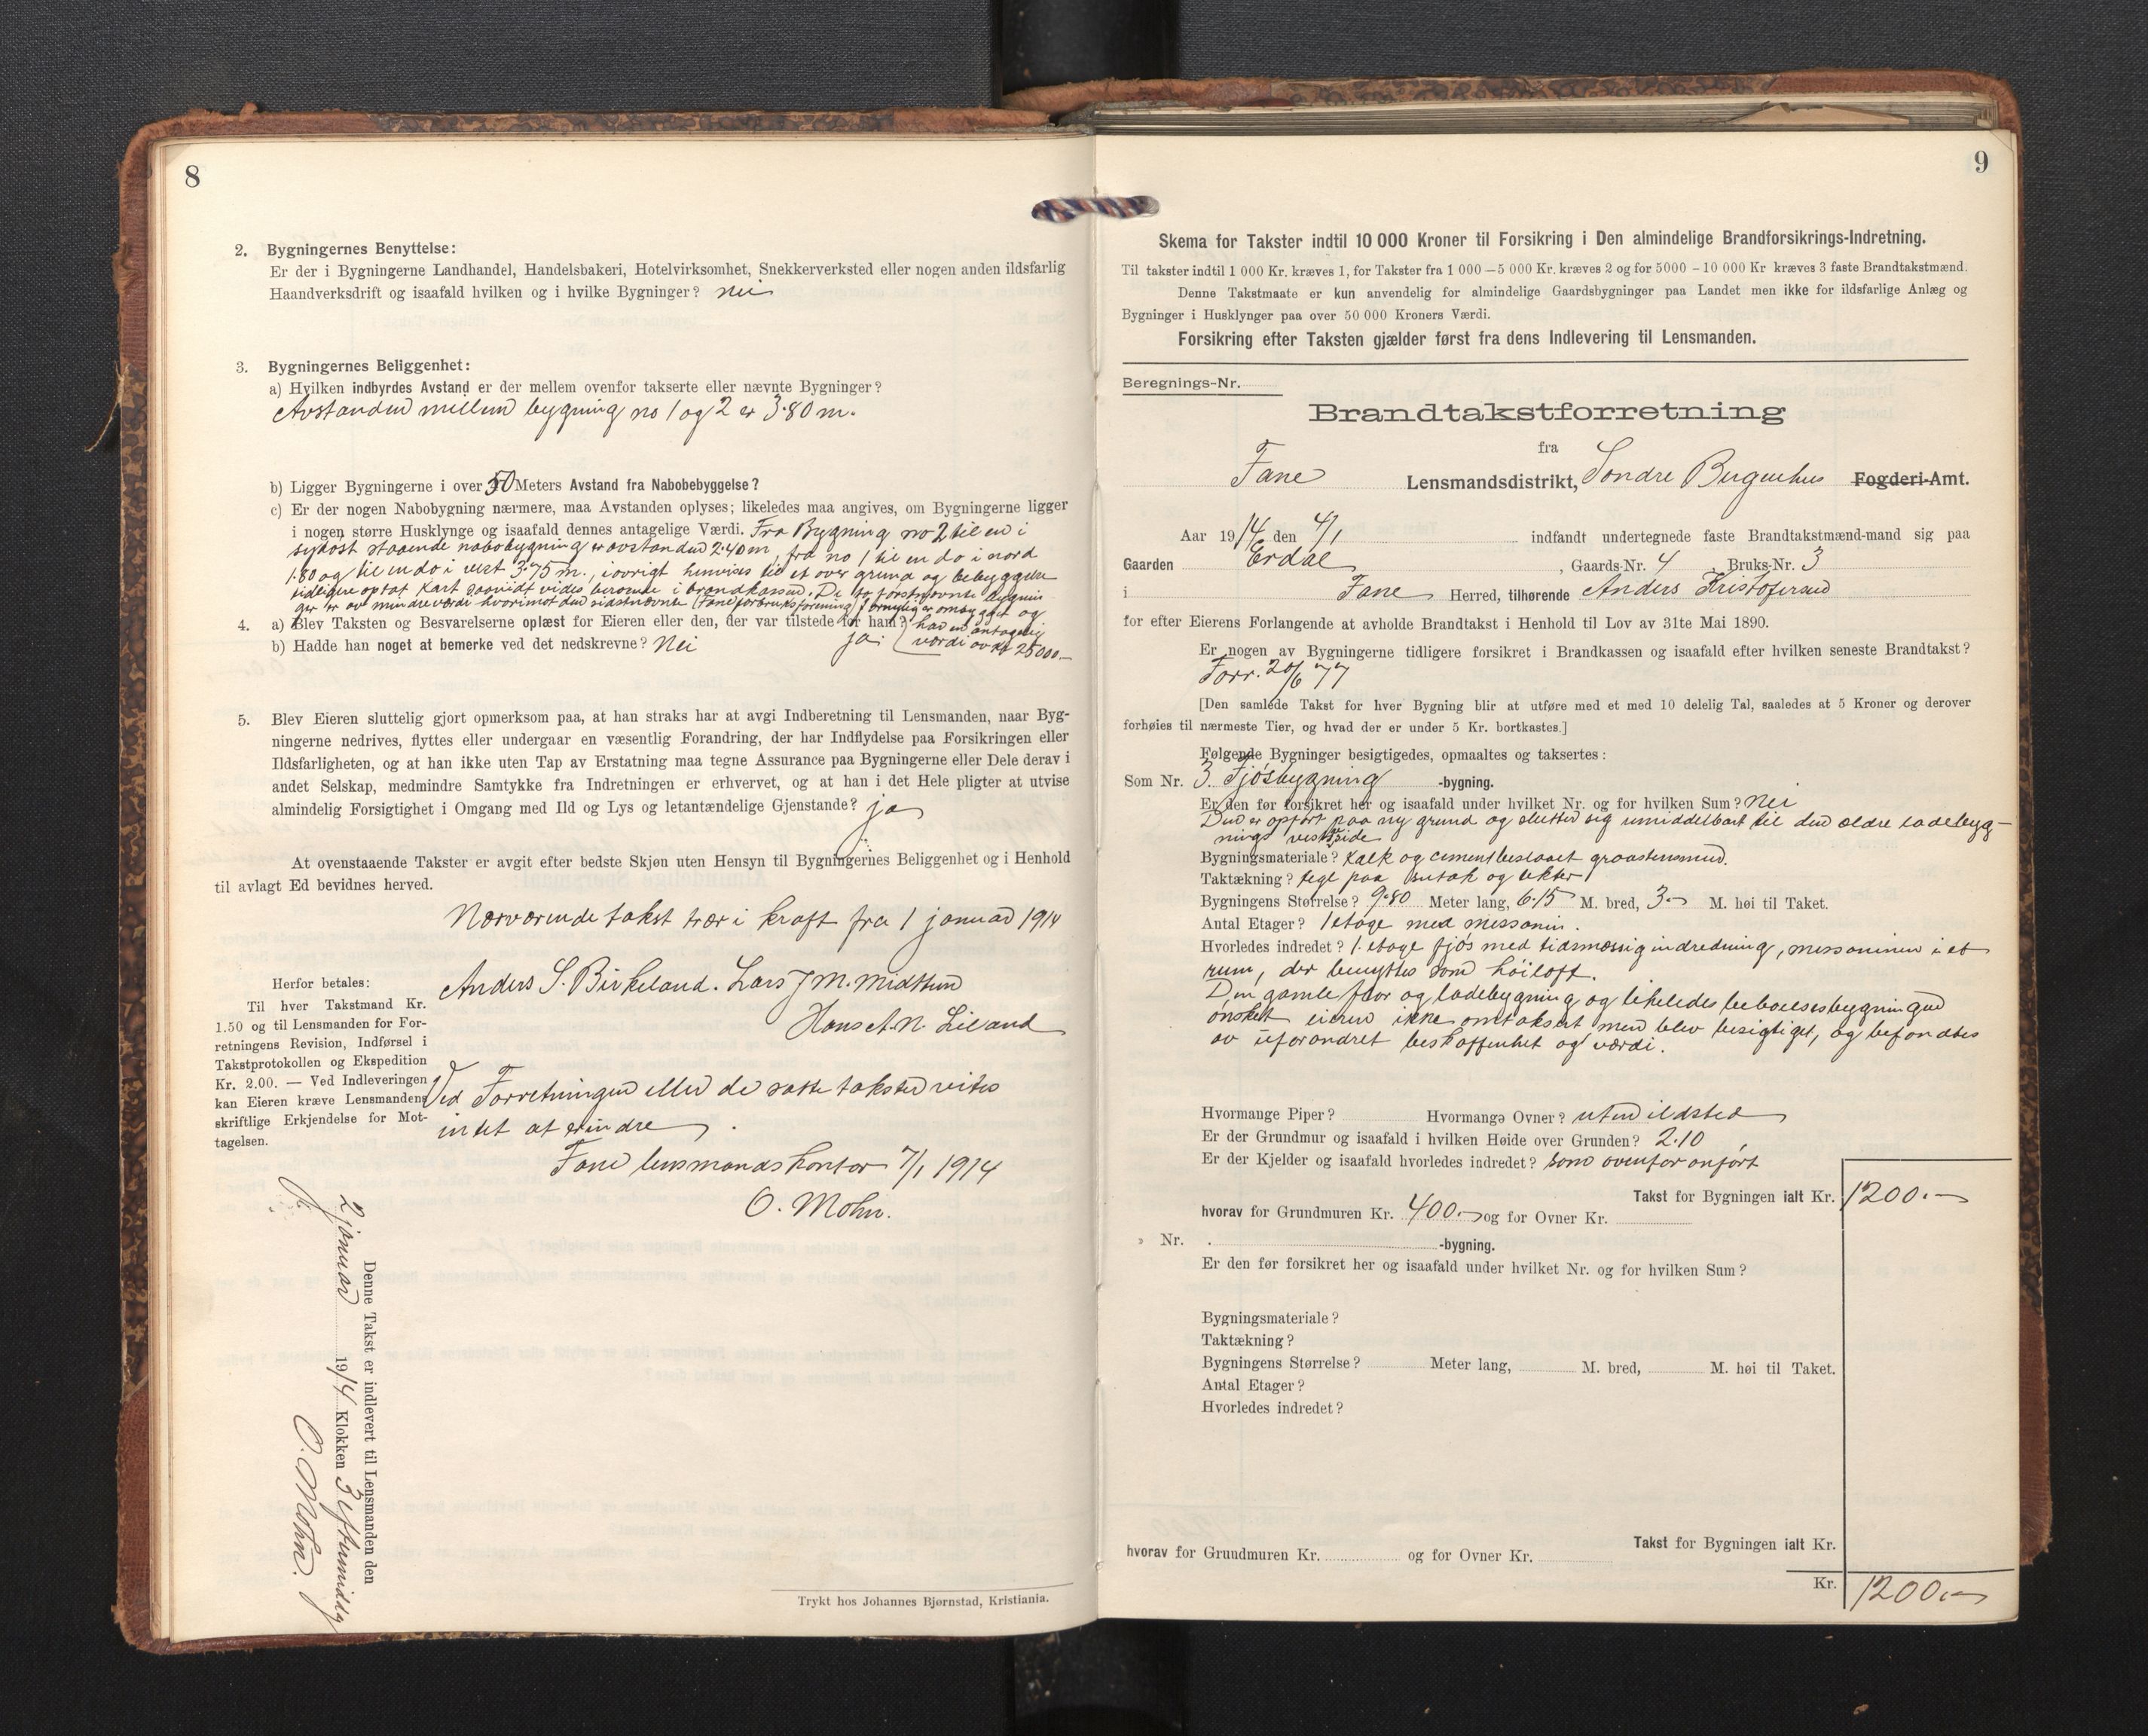 8
2. Bygningernes Benyttelse:
Er der i Bygningerne Landhandel, Handelsbakeri, Hotelvirksomhet, Snekkerverksted eller nogen anden ildsfarlig
Haandverksdrift og isaafald hvilken og i hvilke Bygninger? Nei
3. Bygningernes Beliggenhet:
a) Hvilken indbyrdes Avstand er der mellem ovenfor takserte eller nævnte Bygninger?
Avstanden mellem bygning no 1 og 2 er 3.80 m.
b) Ligger Bygningerne i over 50 Meters Avstand fra Nabobebyggelse?
c) Er der nogen Nabobygning nærmere, maa Avstanden oplyses; likeledes maa angives, om Bygningerne ligger
i nogen større Husklynge og isaafald dennes antagelige Værdi. Fra Bygning no 2 til en i
sydöst staaende nabobygning er avstanden 2.40 m, fra no 1 til en do i nord
1.80 og til en do i vest 3.75 m., iøvrigt henvises til et over grund og bebyggelse
tidligere optat Kart saavidt vides beroende i brandkassen. De to förstnævnte bygnin
ger er av mindre værdi hvorimot den sidstnævnte (Fane forbruksforening) fornylig er ombygget og
4. a) Blev Taksten og Besvarelserne oplæst for Eieren eller den, der var tilstede for ham? ja (har en antagelig
b) Hadde han noget at bemerke ved det nedskrevne? Nei værdi av kr 25000.—
5. Blev Eieren sluttelig gjort opmerksom paa, at han straks har at avgi Indberetning til Lensmanden, naar Byg-
ningerne nedrives, flyttes eller undergaar en væsentlig Forandring, der har Indflydelse paa Forsikringen eller
Ildsfarligheten, og at han ikke uten Tap av Erstatning maa tegne Assurance paa Bygningerne eller Dele derav i
andet Selskap, medmindre Samtykke fra Indretningen er erhvervet, og at han i det Hele pligter at utvise
almindelig Forsigtighet i Omgang med Ild og Lys og letantændelige Gjenstande? ja
At ovenstaaende Takster er avgit efter bedste Skjøn uten Hensyn til Bygningernes Beliggenhet og i Henhold
til avlagt Ed bevidnes herved.
Nærværende takst trær i kraft fra 1 januar 1914
Anders S. Birkeland. Lars J M. Midttun
Hans A. N. Liland
Herfor betales:
Til hver Takstmand Kr.
1.50 og til Lensmanden for For-
retningens Revision, Indførsel i
Takstprotokollen og Ekspedition
Kr. 2.00. — Ved Indleveringen
kan Eieren kræve Lensmandens
skriftlige Erkjendelse for Mot-
tagelsen.
Ved Forretningen eller de satte takster vites
intet at erindre.
Fane lensmandskontor 7/1 1914
O. Mohn.
Denne Takst er indlevert til Lensmanden den
2 januar 1914 Klokken 3 eftermiddg
O. Mohn.
Trykt hos Johannes Bjørnstad, Kristiania.
9
Skema for Takster indtil 10 000 Kroner til Forsikring i Den almindelige Brandforsikrings-Indretning.
Til takster indtil 1 000 Kr. kræves 1, for Takster fra 1 000 — 5 000 Kr. kræves 2 og for 5000 – 10 000 Kr kræves 3 faste Brandtakstmænd.
Denne Takstmaate er kun anvendelig for almindelige Gaardsbygninger paa Landet men ikke for ildsfarlige Anlæg og
Bygninger i Husklynger paa over 50 000 Kroners Værdi.
Forsikring efter Taksten gjælder først fra dens Indlevering til Lensmanden.
Beregnings-Nr.
Brandtakstforretning
fra
Fane Lensmandsdistrikt, Söndre Bergenhus Fogderi-Amt.
Aar 1914 den 4/1 indfandt undertegnede faste Brandtakstmænd-mand sig paa
Gaarden Erdal, Gaards-Nr. 4 Bruks-Nr. 3
i Fane Herred, tilhørende Anders Kristofersen
for efter Eierens Forlangende at avholde Brandtakst i Henhold til Lov av 31te Mai 1890.
Er nogen av Bygningerne tidligere forsikret i Brandkassen og isaafald efter hvilken seneste Brandtakst?
Forr. 20/6 77
[Den samlede Takst for hver Bygning blir at utføre med et med 10 delelig Tal, saaledes at 5 Kroner og derover
forhøies til nærmeste Tier, og hvad der er under 5 Kr. bortkastes.]
Følgende Bygninger besigtigedes, opmaaltes og taksertes:
Som Nr. 3 Fjösbygning -bygning.
Er den før forsikret her og isaafald under hvilket Nr. og for hvilken Sum? Nei
Den er opfört paa ny grund og slutter sig umiddelbart til den ældre ladebyg-
nings vestside
Bygningsmateriale? Kalk og cementbeslaaet graastensmur.
Taktækning? tegl paa sutak og lekter
Bygningens Størrelse? 9.80 Meter lang, 6.15 M. bred, 3.- M. høi til Taket.
Antal Etager? 1 etage med messanin.
Hvorledes indredet? 1. etage fjös med tidsmæssig indredning, messaninen i et
rum, der benyttes som höiloft.
Den gamle flor og ladebygning og likeledes beboelsesbygningen
önsket eieren ikke omtaksert men blev besigtiget, og befandtes
av uforandret beskaffenhet og værdi.
Hvormange Piper? Hvormange Ovner? uten ildsted
Er der Grundmur og isaafald i hvilken Høide over Grunden? 2.10
Er der Kjelder og isaafald hvorledes indredet? som ovenfor anfört
Takst for Bygningen ialt Kr. 1200.—
hvorav for Grundmuren Kr. 400.- og for Ovner Kr.
» Nr. -bygning.
Er den før forsikret her og isaafald under hvilket Nr. og for hvilken Sum?
Bygningsmateriale?
Taktækning?
Bygningens Størrelse? Meter lang, M. bred, M. høi til Taket.
Antal Etager?
Hvorledes indredet?
Takst for Bygningen ialt Kr.
hvorav for Grundmuren Kr. og for Ovner Kr.
Kr. 1200.-